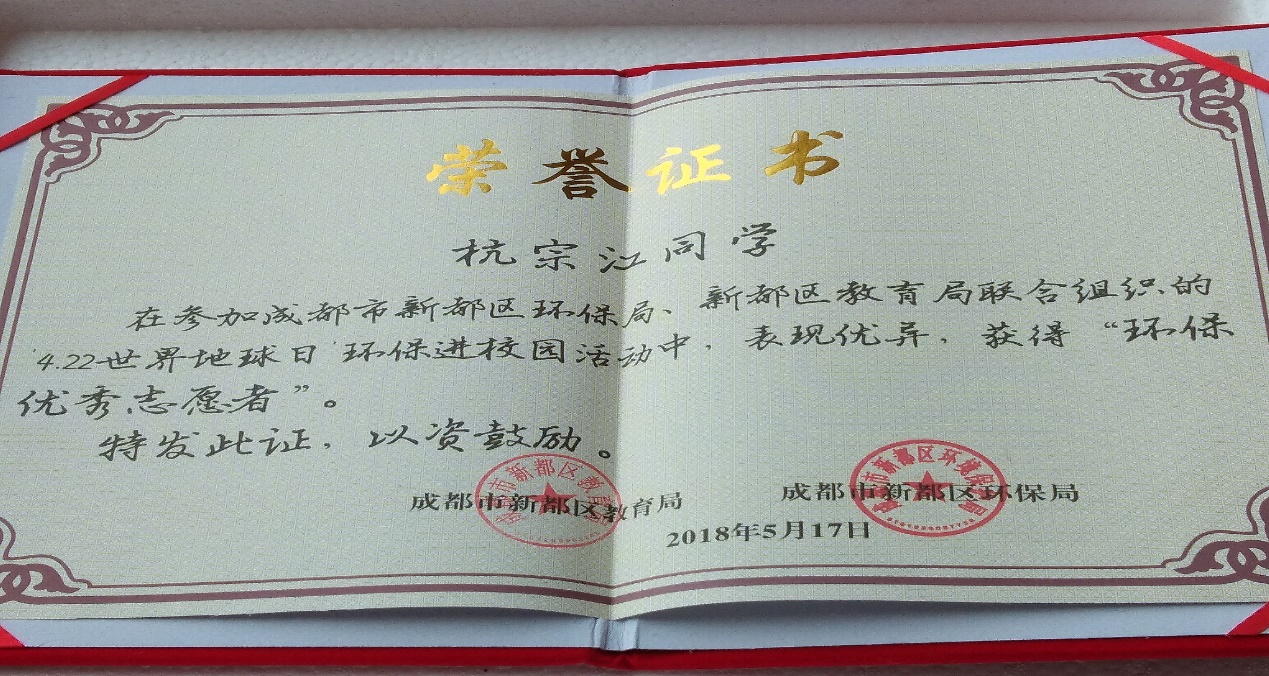 荣誉证书
杭宗江同学
在参加成都市新都区环保局、新都区教育局联合组织的
“4.22世界地球日”环保进校园活动中，表现优异，获得“环保
优秀志愿者”。
特发此证，以资鼓励。
成都市新都区教育局 成都市新都区环保局
2018年5月17日